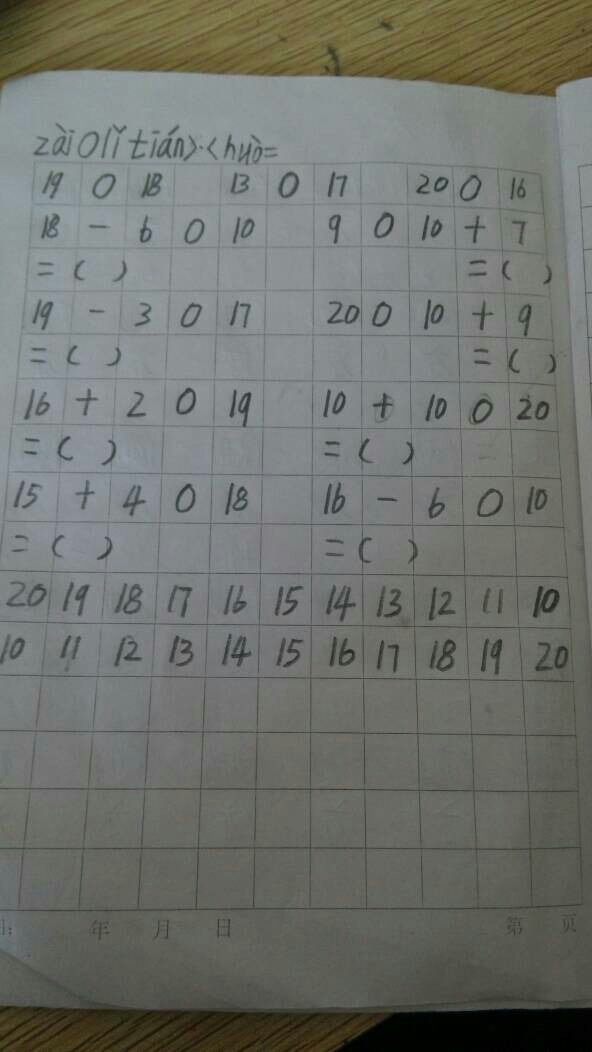 zài O lǐ tián >·< huò =
19 ○ 18 13 ○ 17 20 ○ 16
18 - 6 ○ 10 9 ○ 10 + 7
= ( ) = ( )
19 - 3 ○ 17 20 ○ 10 + 9
= ( ) = ( )
16 + 2 ○ 19 10 + 10 ○ 20
= ( ) = ( )
15 + 4 ○ 18 16 - 6 ○ 10
= ( ) = ( )
20 19 18 17 16 15 14 13 12 11 10
10 11 12 13 14 15 16 17 18 19 20
年 月 日 第 页